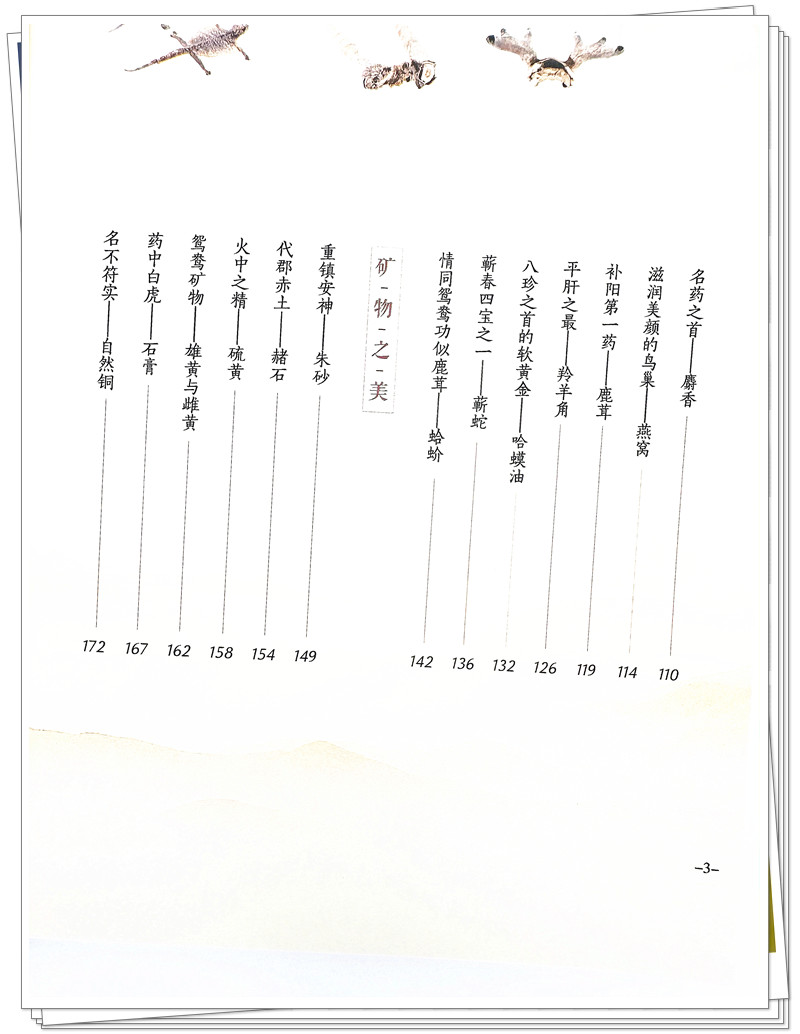 名药之首——麝香 110
滋润美颜的鸟巢——燕窝 114
补阳第一药——鹿茸 119
平肝之最——羚羊角 126
八珍之首的软黄金——哈蟆油 132
蕲春四宝之一——蕲蛇 136
情同鸳鸯功似鹿茸——蛤蚧 142
矿-物-之-美
重镇安神——朱砂 149
代郡赤土——赭石 154
火中之精——硫黄 158
鸳鸯矿物——雄黄与雌黄 162
药中白虎——石膏 167
名不符实——自然铜 172
–3–